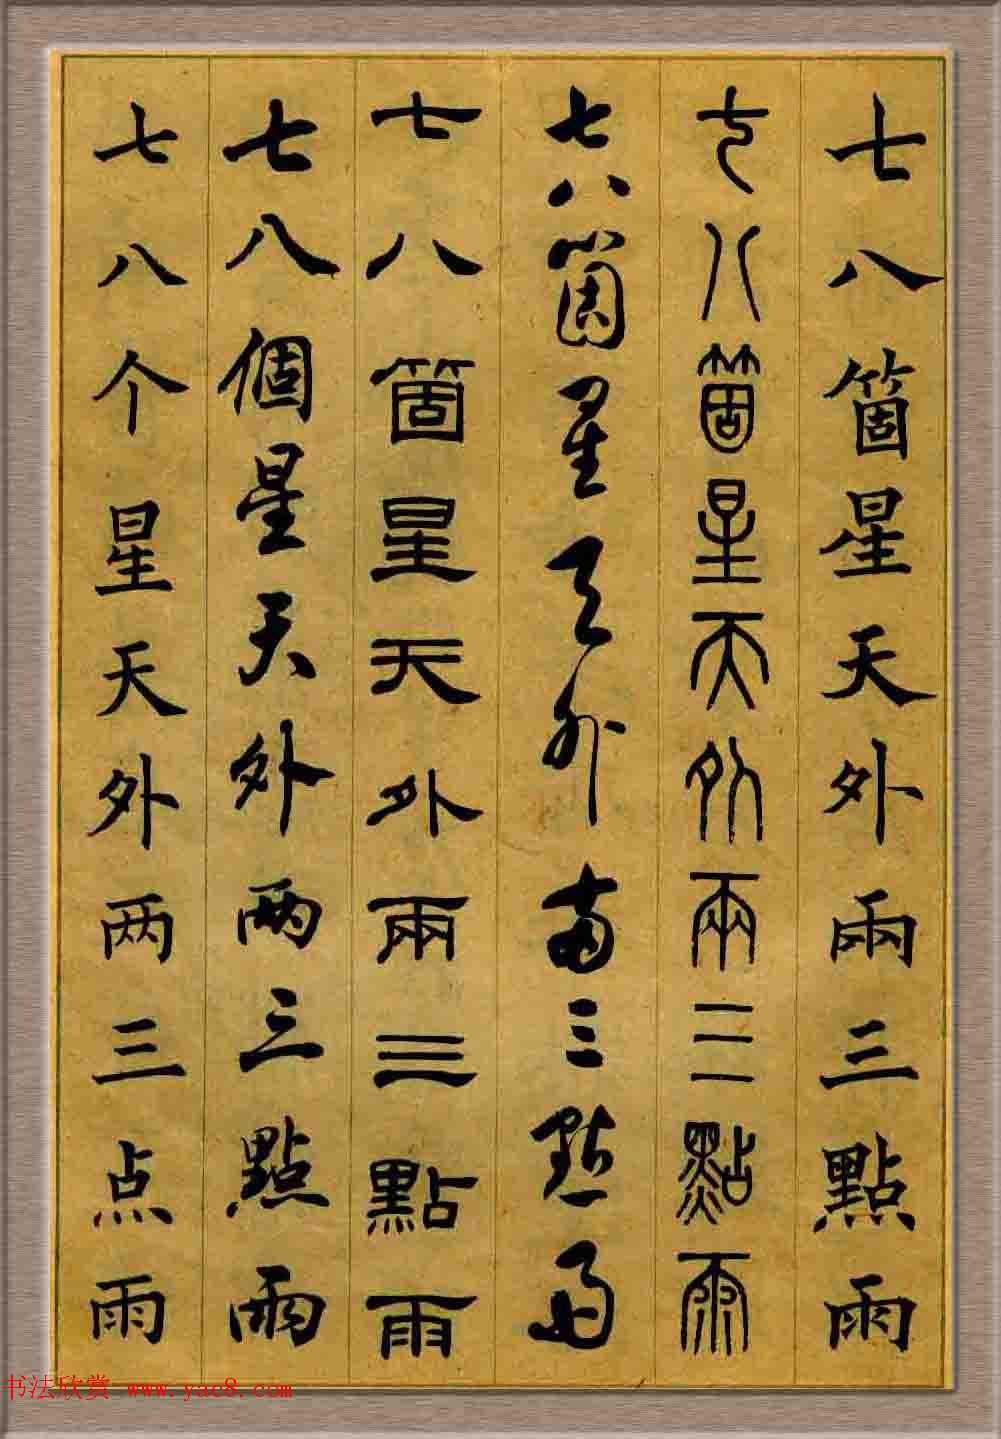 七八箇星天外兩三點雨
七八箇星天外兩三點雨
七八箇星天外两三點雨
七八箇星天外兩三點雨
七八個星天外两三點雨
七八个星天外两三点雨
书法欣赏 www.yac8.com